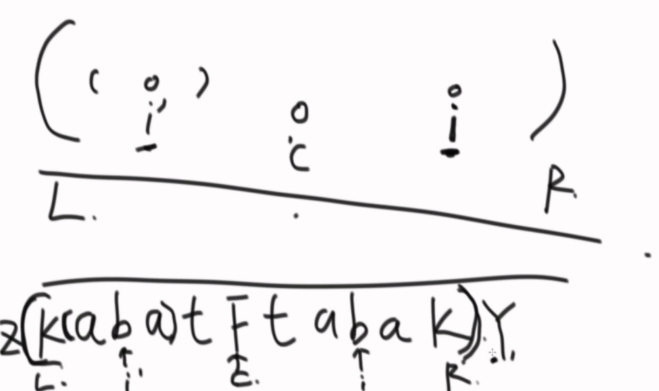 ( ( i' ) C i )
L. R.
Z(K(aba)tFtabaK)Y
L. i' C. i R.